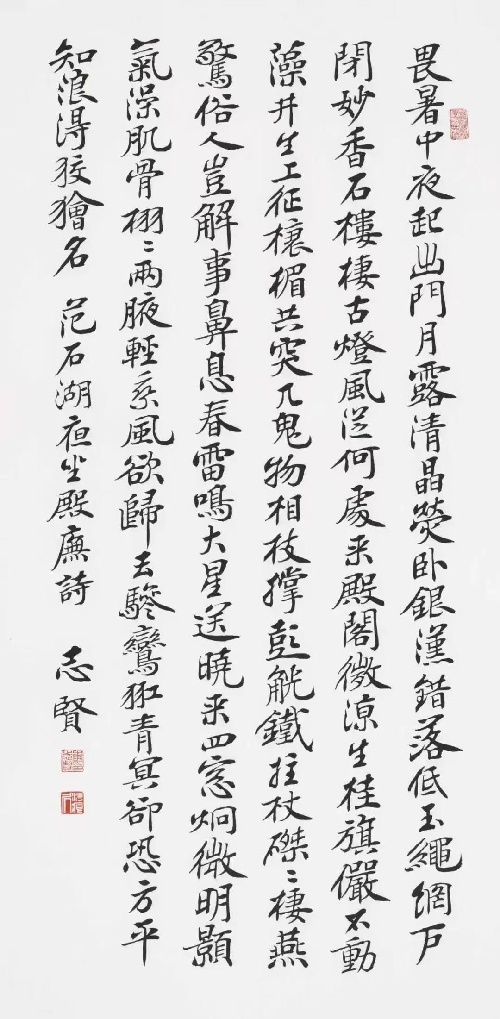 畏暑中夜起出門月露清晶熒臥銀漢錯落低玉繩網戶
閉妙香石樓棲古燈風從何處來殿閣微涼生桂旗儼不動
藻井生工征榱楣共突兀鬼物相枝撐彭觥鐵拄杖磔〻棲燕
驚俗人豈解事鼻息春雷鳴大星送曉來四窗炯微明顥
氣澡肌骨栩〻兩腋輕乘風欲歸去驂鸞青冥卻恐方平
知浪得狡獪名 范石湖夜坐殿廡詩 志賢